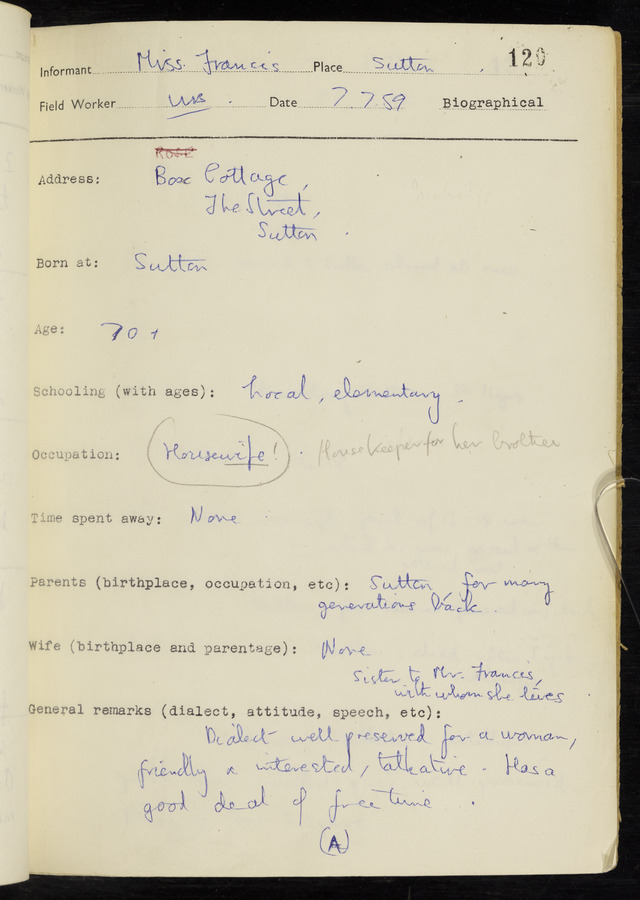 120
Informant Miss. Francis Place Sutton
Field Worker Date 7.7.59 Biographical
Rose
Address: Box Cottage,
The Street,
Sutton.
Born at: Sutton
Age: 70+
Schooling (with ages): Local, elementary.
Occupation: Housewife! . Housekeeper for her brother
Time spent away: None
Parents (birthplace, occupation, etc): Sutton for many
generations back.
Wife (birthplace and parentage): None
Sister to Mr. Francis,
with whom she lives
General remarks (dialect, attitude, speech, etc):
Dialect well preserved for a woman,
friendly & interested, talkative. Has a
good deal of free time.
(A)